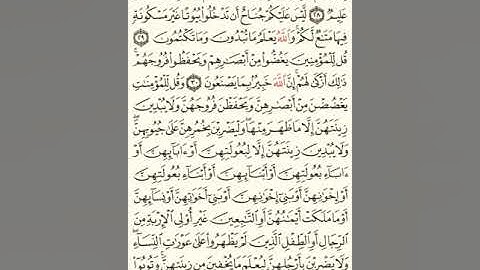 عَلِيمٌ ٢٨ لَّيْسَ عَلَيْكُمْ جُنَاحٌ أَن تَدْخُلُوا۟ بُيُوتًا غَيْرَ مَسْكُونَةٍ
فِيهَا مَتَٰعٌ لَّكُمْ ۚ وَٱللَّهُ يَعْلَمُ مَا تُبْدُونَ وَمَا تَكْتُمُونَ ٢٩
قُل لِّلْمُؤْمِنِينَ يَغُضُّوا۟ مِنْ أَبْصَٰرِهِمْ وَيَحْفَظُوا۟ فُرُوجَهُمْ ۚ
ذَٰلِكَ أَزْكَىٰ لَهُمْ ۗ إِنَّ ٱللَّهَ خَبِيرٌۢ بِمَا يَصْنَعُونَ ٣٠ وَقُل لِّلْمُؤْمِنَٰتِ
يَغْضُضْنَ مِنْ أَبْصَٰرِهِنَّ وَيَحْفَظْنَ فُرُوجَهُنَّ وَلَا يُبْدِينَ
زِينَتَهُنَّ إِلَّا مَا ظَهَرَ مِنْهَا ۖ وَلْيَضْرِبْنَ بِخُمُرِهِنَّ عَلَىٰ جُيُوبِهِنَّ ۖ
وَلَا يُبْدِينَ زِينَتَهُنَّ إِلَّا لِبُعُولَتِهِنَّ أَوْ ءَابَآئِهِنَّ أَوْ
ءَابَآءِ بُعُولَتِهِنَّ أَوْ أَبْنَآئِهِنَّ أَوْ أَبْنَآءِ بُعُولَتِهِنَّ
أَوْ إِخْوَٰنِهِنَّ أَوْ بَنِىٓ إِخْوَٰنِهِنَّ أَوْ بَنِىٓ أَخَوَٰتِهِنَّ أَوْ نِسَآئِهِنَّ
أَوْ مَا مَلَكَتْ أَيْمَٰنُهُنَّ أَوِ ٱلتَّٰبِعِينَ غَيْرِ أُو۟لِى ٱلْإِرْبَةِ مِنَ
ٱلرِّجَالِ أَوِ ٱلطِّفْلِ ٱلَّذِينَ لَمْ يَظْهَرُوا۟ عَلَىٰ عَوْرَٰتِ ٱلنِّسَآءِ ۖ
وَلَا يَضْرِبْنَ بِأَرْجُلِهِنَّ لِيُعْلَمَ مَا يُخْفِينَ مِن زِينَتِهِنَّ ۚ وَتُوبُوٓا۟